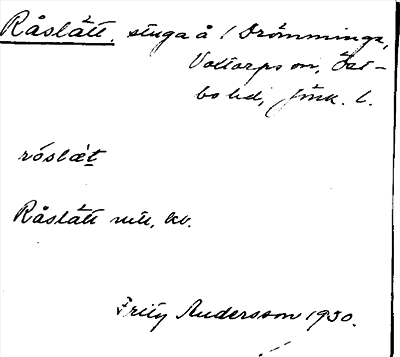 Råslätt, stuga å 1 Drömminge,
Voxtorps sn, Öst-
bo hd, Jönk. l.
róslæt
Råslätt mtl, kv.
Fritz Andersson 1930.